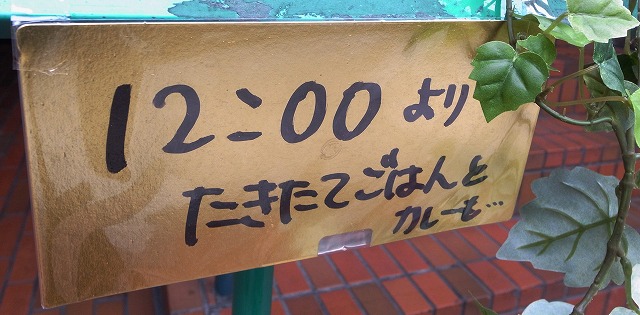 12:00 より
たきたてごはんと
カレーも…